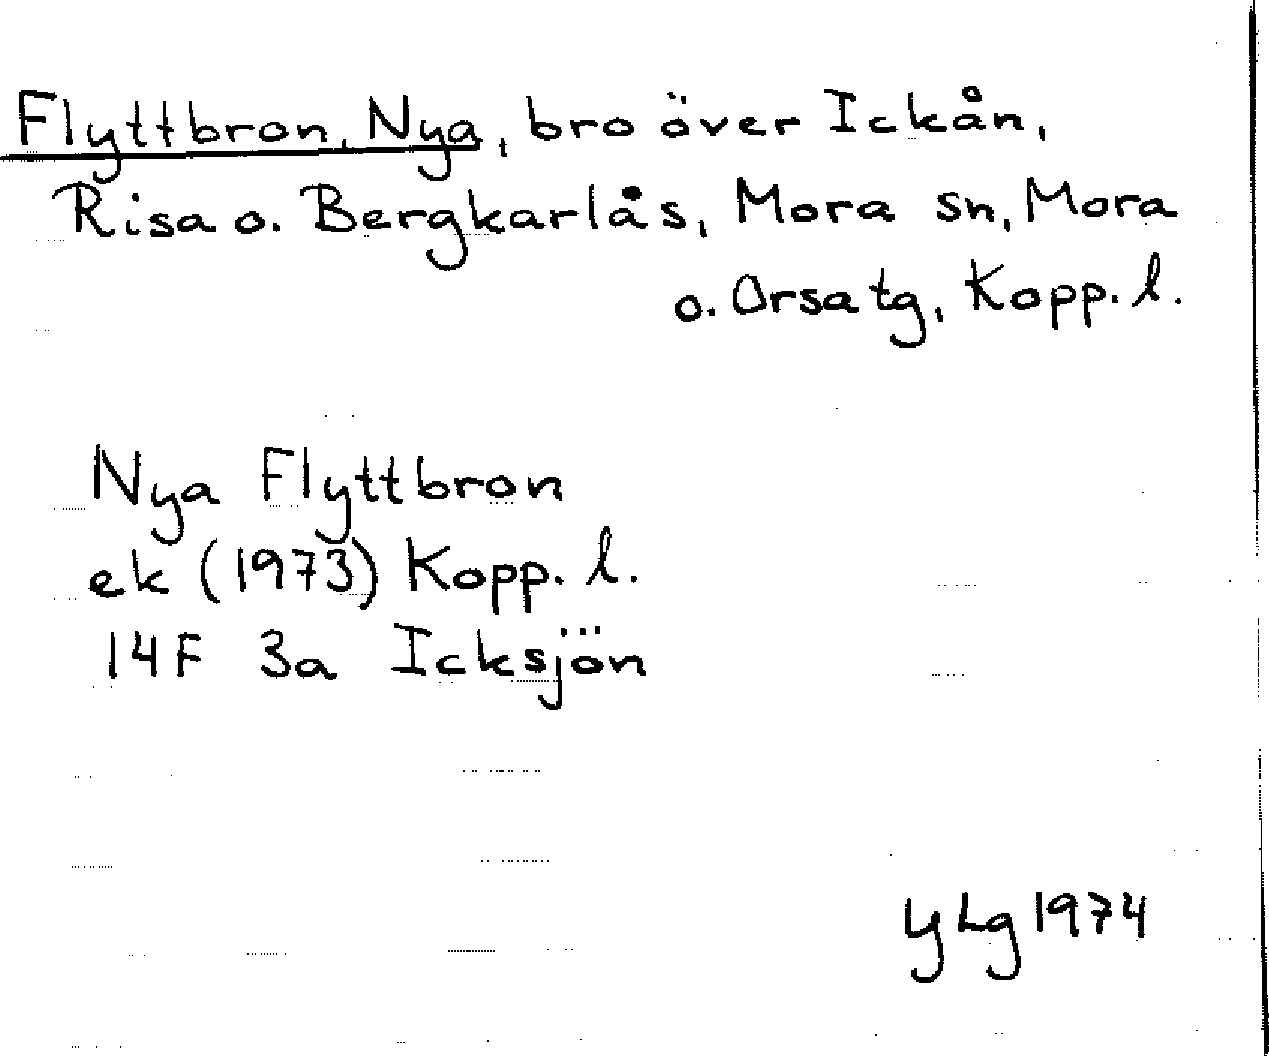 Flyttbron, Nya, bro över Ickån,
Risa o. Bergkarlås, Mora sn, Mora
o. Orsa tg, Kopp. l.
Nya Flyttbron
ek (1973) Kopp. l.
14F 3a Icksjön
YLg 1974